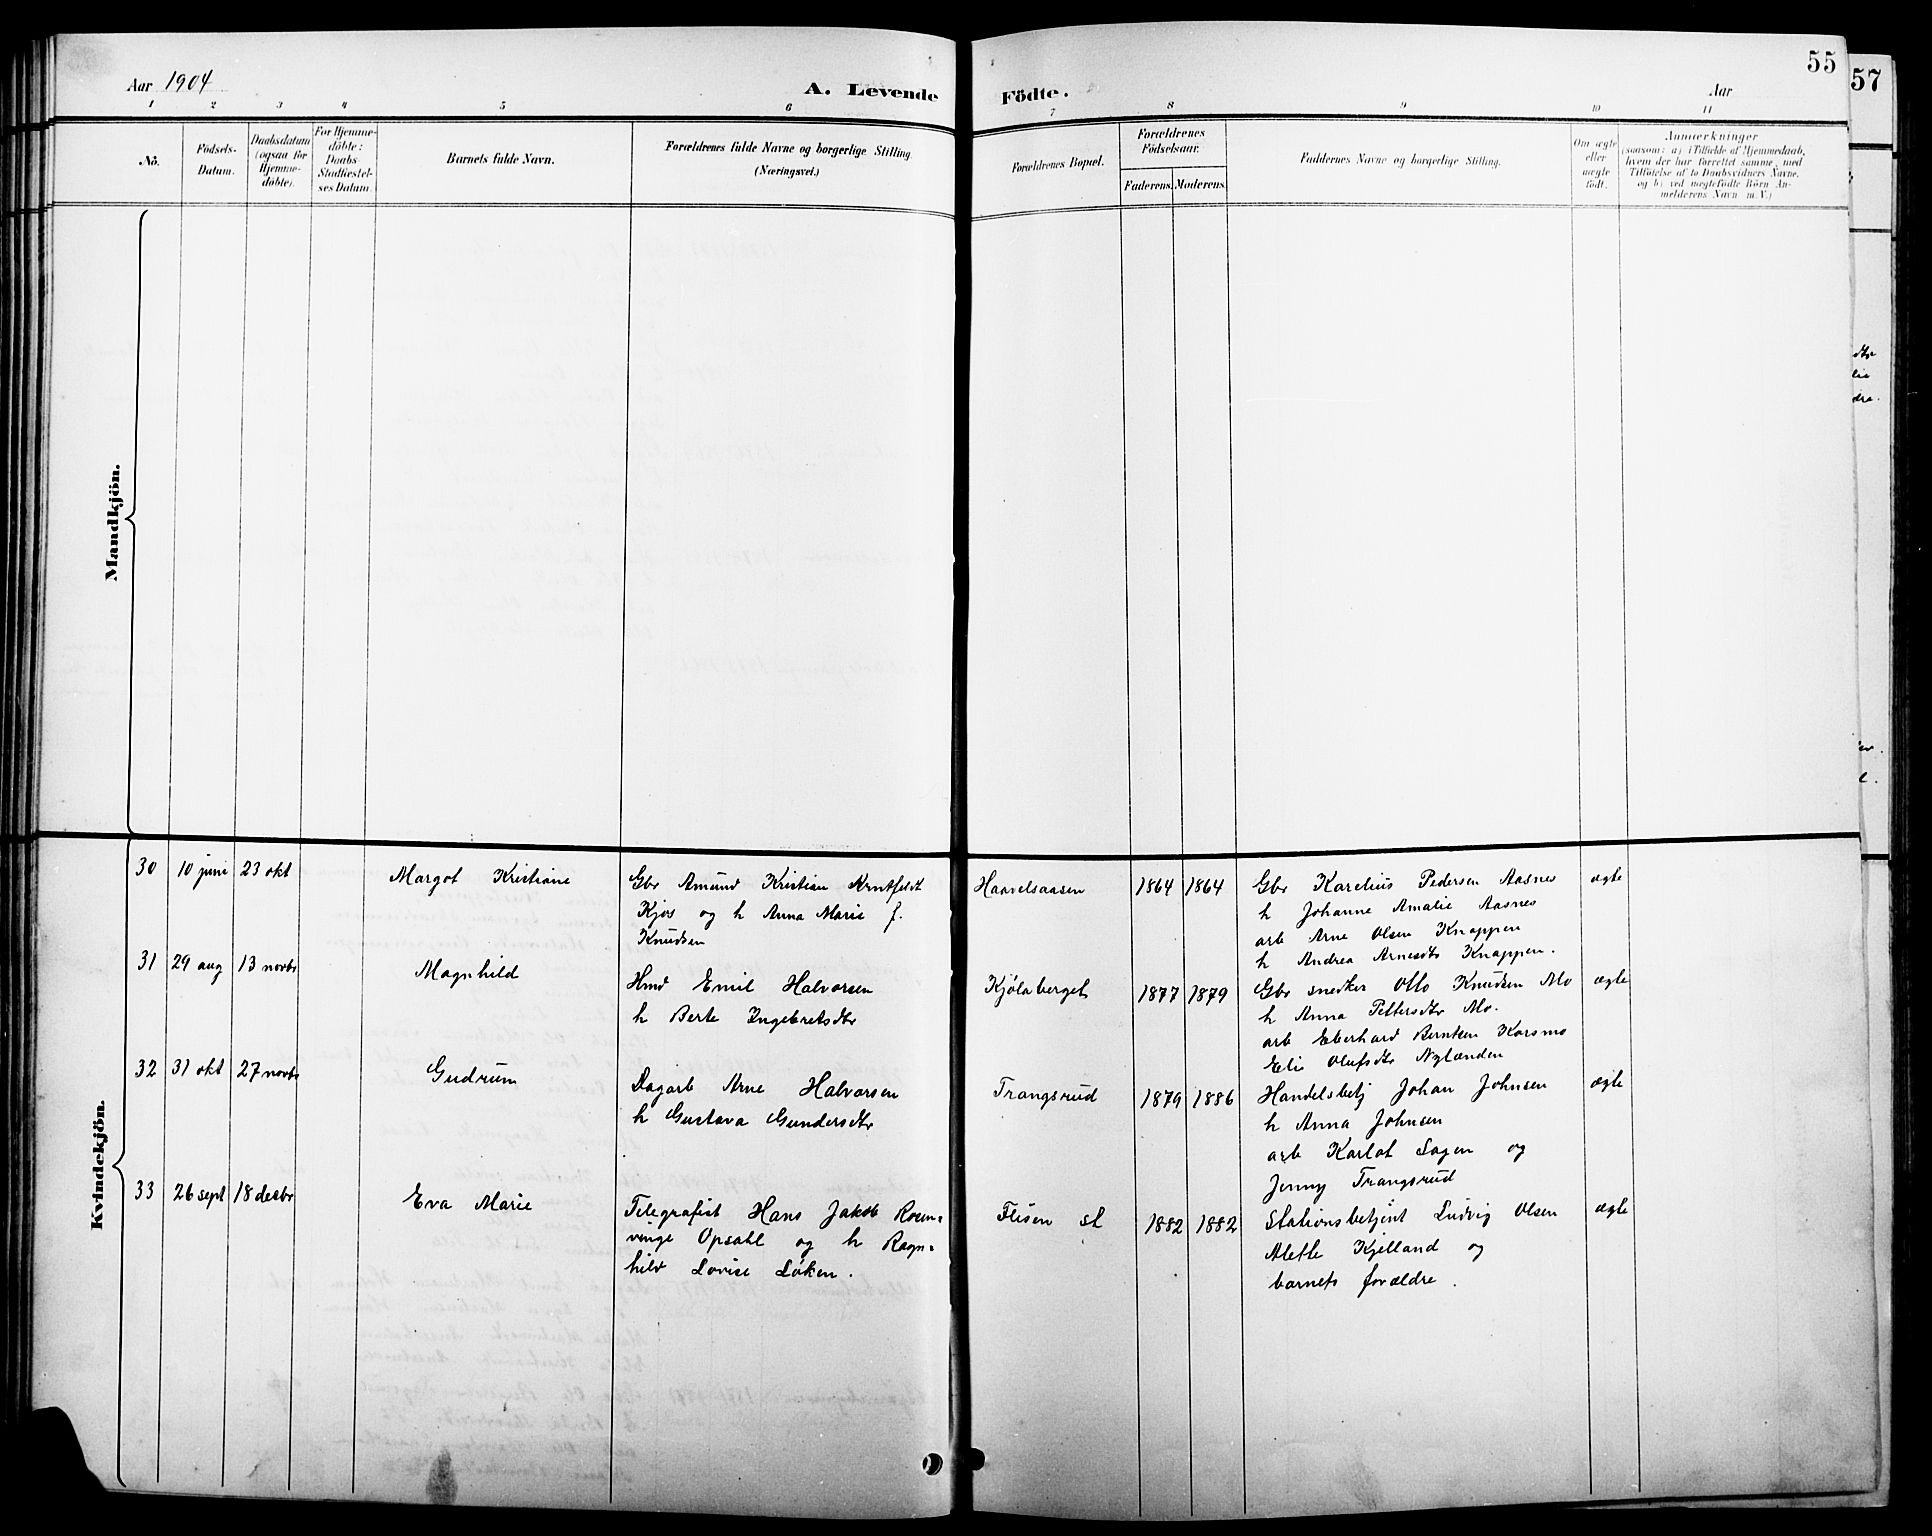 Aar 1904
A. Levende Födte.
Aar
55
57
1 2 3 4 5 6 7 8 9 10 11
No.
Födsels-
Datum.
Daabsdatum
(ogsaa for
Hjemme-
døbte).
For Hjemme-
döbte:
Daabs-
Stadfæstel-
ses Datum.
Barnets fulde Navn.
Forældrenes fulde Navne og borgerlige Stilling
(Næringsvei.)
Forældrenes Bopæl.
Forældrenes
Födselsaar.
Faderens. Moderens.
Faddernes Navne og borgerlige Stilling.
Om ægte
eller
uægte
født.
Anmærkninger
(saasom: a) i Tilfælde af Hjemmedaab,
hvem der har forrettet samme, med
Tilføielse af to Daabsvidners Navne.
og b) ved uægtefødte Börn An-
melderens Navn m. V.)
Mandkjön.
Kvindekjön.
30 10 juni 23 okt Margot Kristiane
Gbr Amund Kristian Arntfeldt
Kjos og h Anna Marie f.
Knudsen
Haavelsaasen 1864 1864
Gbr Karelius Pedersen Aasnes
h Johanne Amalie Aasnes
arb Arne Olsen Knappen
h Andrea Arnesdtr Knappen.
ægte
31 29 aug 13 novbr Magnhild
Hmd Emil Halvorsen
h Berte Ingebretsdtr
Kjølaberget 1877 1879
Gbr snedker Otto Knudsen Mo
h Anna Pettersdtr Mo.
arb Eberhard Berntsen Korsmo
Elie Olufsdtr Nylænden
ægte
32 31 okt 27 novbr Gudrum
Dagarb Arne Halvorsen
h Gustava Gundersdtr
Trangsrud 1879 1886
Handelsbetj Johan Johnsen
h Anna Johnsen
arb Karlot Lagen og
Jenny Trangsrud
ægte
33 26 sept 18 decbr Eva Marie
Telegrafist Hans Jakob Rosen=
vinge Opsahl og h Ragn=
hild Lovise Løken.
Flisen st 1882 1882
Stationsbetjent Ludvig Olsen
Alette Kjelland og
barnets forældre.
ægte